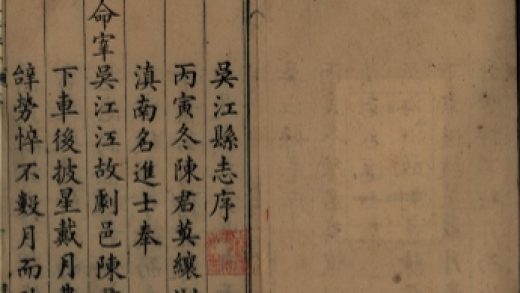 吳江縣志序
丙寅冬陳君英纕
滇南名進士奉
命宰吳江江故劇邑陳
下車後披星戴月
辝勞悴不數月而